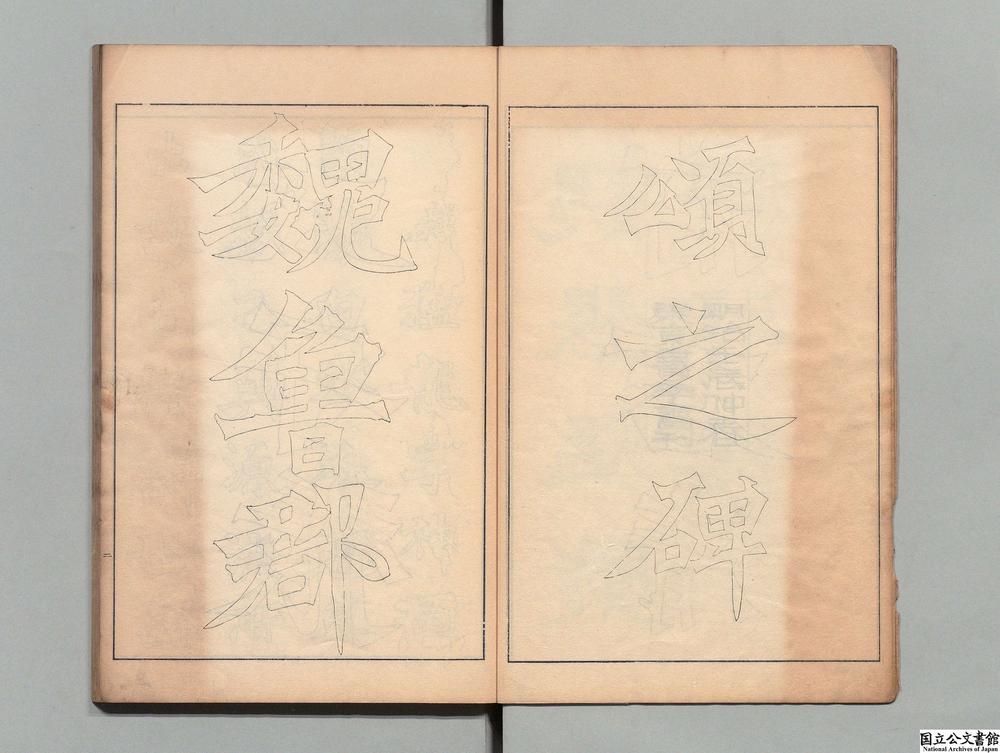 頌之碑
魏魯郡
二
国立公文書館
National Archives of Japan